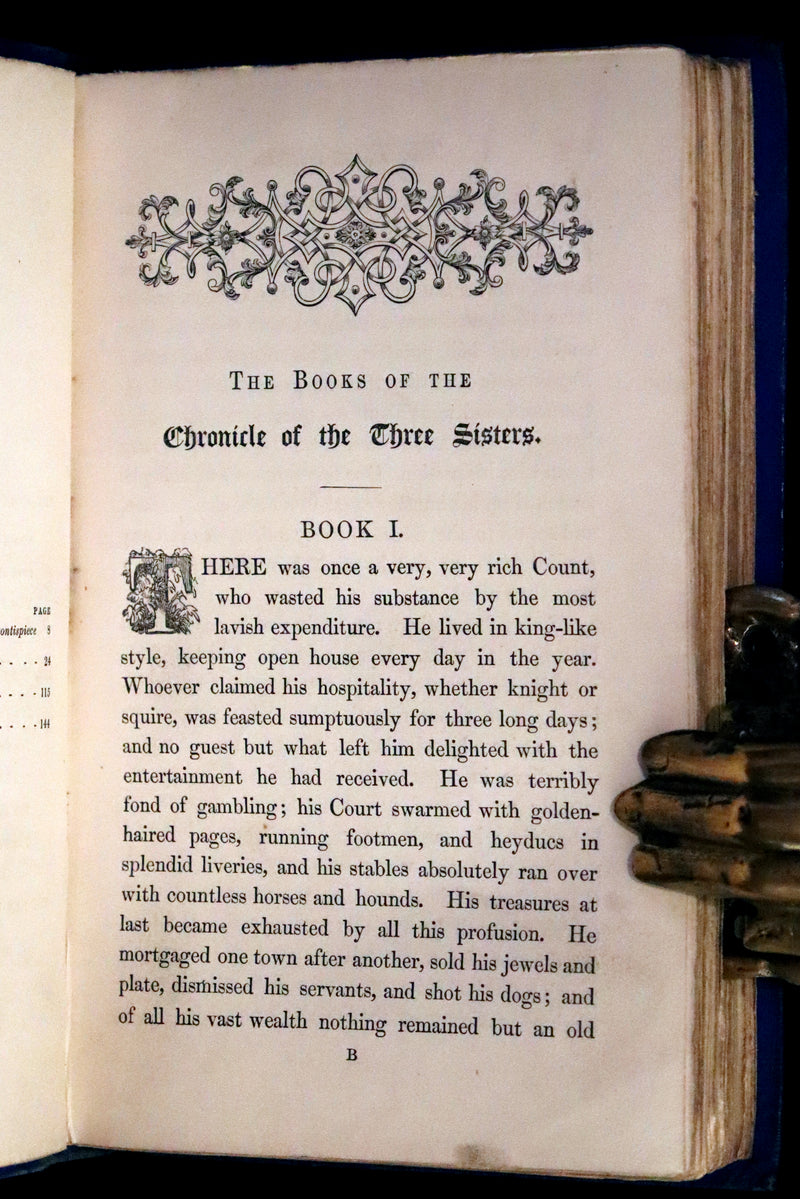 PAGE
ontispiece 8
. . . . 24
. . . . 115
. . . . 144
THE BOOKS OF THE
Chronicle of the Three Sisters.
BOOK I.
THERE was once a very, very rich Count,
who wasted his substance by the most
lavish expenditure. He lived in king-like
style, keeping open house every day in the year.
Whoever claimed his hospitality, whether knight or
squire, was feasted sumptuously for three long days;
and no guest but what left him delighted with the
entertainment he had received. He was terribly
fond of gambling; his Court swarmed with golden-
haired pages, running footmen, and heyducs in
splendid liveries, and his stables absolutely ran over
with countless horses and hounds. His treasures at
last became exhausted by all this profusion. He
mortgaged one town after another, sold his jewels and
plate, dismissed his servants, and shot his dogs; and
of all his vast wealth nothing remained but an old
B